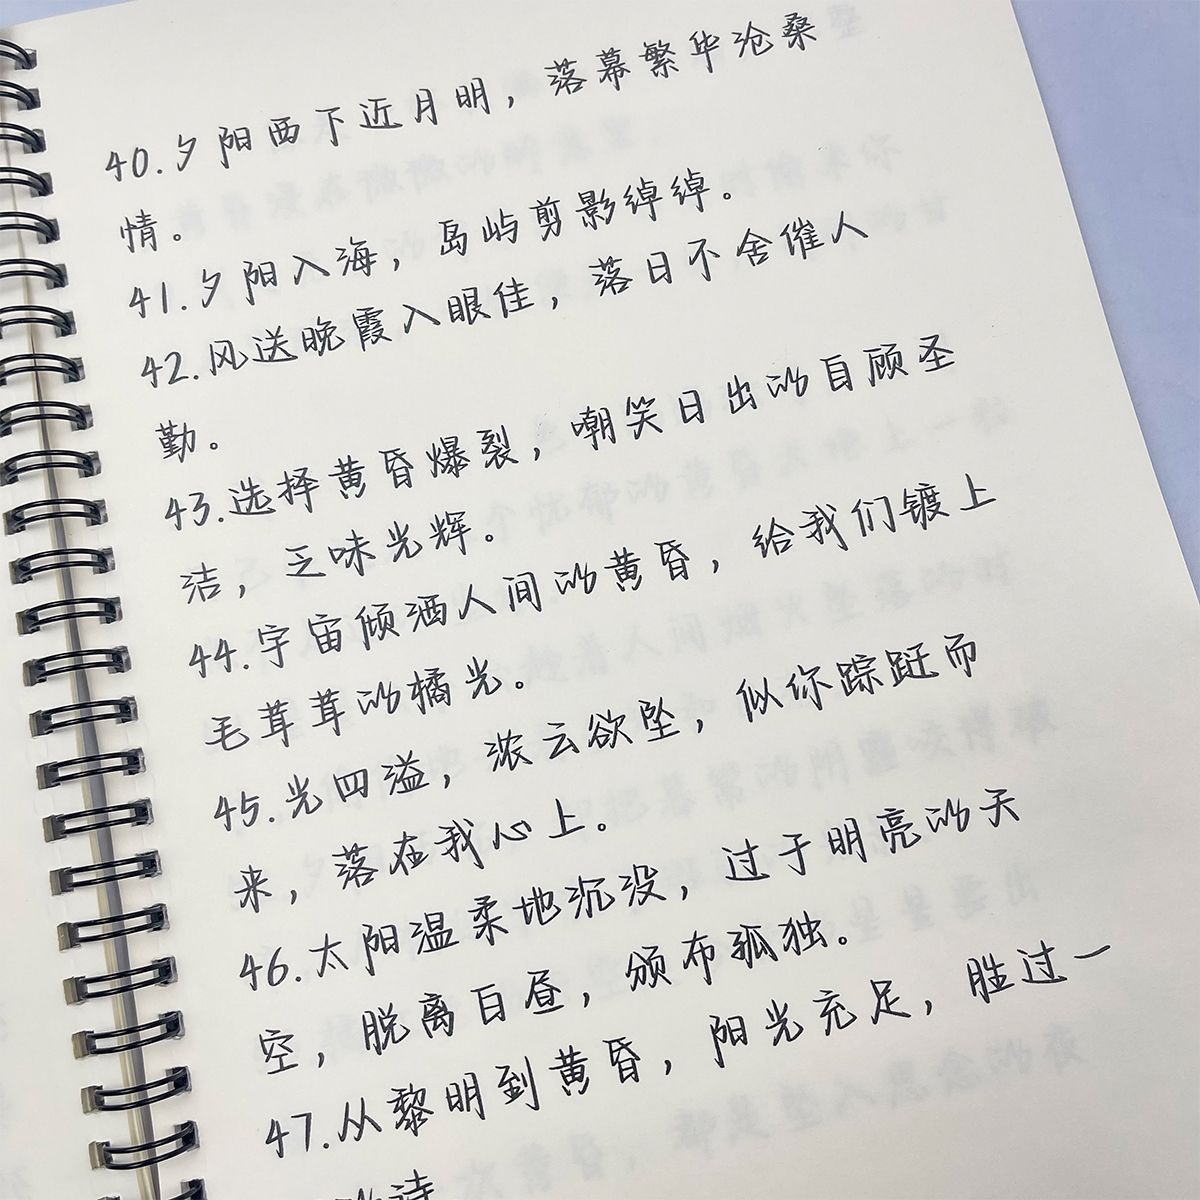 40.夕阳西下近月明，落幕繁华沧桑
情。
41.夕阳入海，岛屿剪影绰绰。
42.风送晚霞入眼佳，落日不舍催人
勤。
43.选择黄昏爆裂，嘲笑日出的自顾圣
洁，乏味光辉。
44.宇宙倾洒人间的黄昏，给我们镀上
毛茸茸的橘光。
45.光四溢，浓云欲坠，似你踪跹而
来，落在我心上。
46.太阳温柔地沉没，过于明亮的天
空，脱离白昼，颁布孤独。
47.从黎明到黄昏，阳光充足，胜过一
的诗